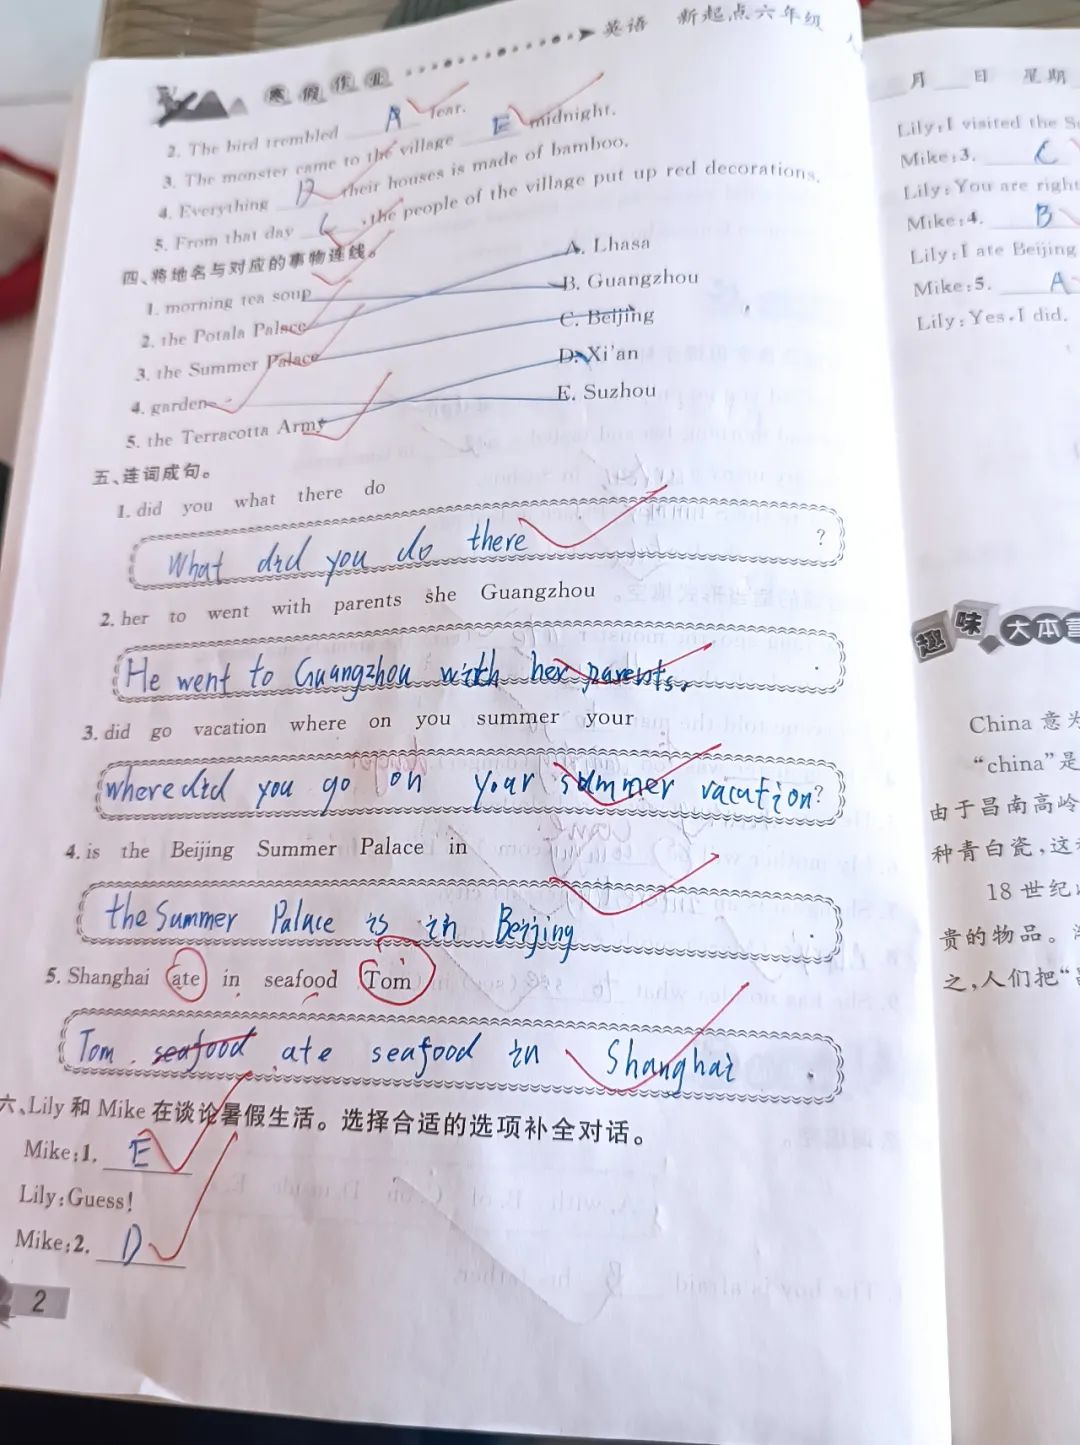 寒假作业 英语 新起点六年级
2. The bird trembled A fear.
3. The monster came to the village E midnight.
4. Everything D their houses is made of bamboo.
5. From that day C , the people of the village put up red decorations.
四、将地名与对应的事物连线。
1. morning tea soup
A. Lhasa
2. the Potala Palace
B. Guangzhou
3. the Summer Palace
C. Beijing
4. garden
D. Xi'an
5. the Terracotta Army
E. Suzhou
五、连词成句。
1. did you what there do
What did you do there ?
2. her to went with parents she Guangzhou
He went to Guangzhou with her parents.
3. did go vacation where on you summer your
where did you go on your summer vacation?
4. is the Beijing Summer Palace in
the Summer Palace is in Beijing .
5. Shanghai ate in seafood Tom
Tom seafood ate seafood in Shanghai .
六、Lily 和 Mike 在谈论暑假生活。选择合适的选项补全对话。
Mike:1. E
Lily:Guess!
Mike:2. D
2
月 日 星期
Lily:I visited the
Mike:3. C
Lily:You are right
Mike:4. B
Lily:I ate Beijing
Mike:5. A
Lily:Yes,I did.
趣味大本
China 意为
“china”是
由于昌南高岭
种青白瓷,这
18 世纪
贵的物品。
之,人们把“